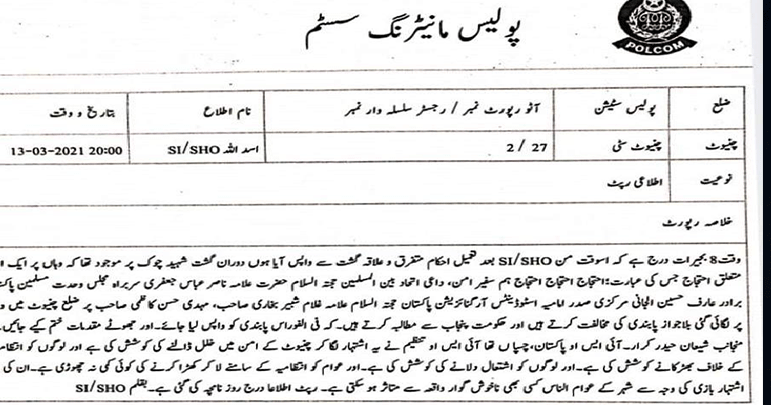 پولیس مانیٹرنگ سسٹم
POLCOM
ضلع پولیس سٹیشن آٹو رپورٹ نمبر / رجسٹر سلسلہ وار نمبر نام اطلاع بتاریخ و وقت
چنیوٹ چنیوٹ سٹی 2 / 27 اسد اللہ SI/SHO 13-03-2021 20:00
نوعیت اطلاعی رپٹ
خلاصہ رپورٹ
وقت 8 بجیرات درج ہے کہ اسوقت من SI/SHO بعد تعمیل احکام متفرق و علاقہ گشت سے واپس آیا ہوں دوران گشت شہید چوک پر موجود تھا کہ وہاں پر ایک
متعلق احتجاج جس کی عبارت: احتجاج احتجاج احتجاج ہم سفیر امن، داعی اتحاد بین المسلمین حجتہ السلام حضرت علامہ ناصر عباس جعفری سربراہ مجلس وحدت مسلمین
برادر عارف حسین الجانی مرکزی صدر امامیہ اسٹوڈینٹس آرگنائزیشن پاکستان حجتہ السلام علامہ غلام شبیر بخاری صاحب، مہدی حسن کاظمی صاحب پر ضلع چنیوٹ میں
پر لگائی گئی بلاجواز پابندی کی مخالفت کرتے ہیں اور حکومت پنجاب سے مطالبہ کرتے ہیں۔ کہ فی الفوراس پابندی کو واپس لیا جائے۔ اور جھوٹے مقدمات ختم کیے جائیں۔
منجانب شیعان حیدر کرار۔ آئی ایس او پاکستان، چسپاں تھا آئی ایس او تنظیم نے یہ اشتہار لگا کر چنیوٹ کے امن میں خلل ڈالنے کی کوشش کی ہے اور لوگوں کو
کے خلاف بھڑکانے کوشش کی ہے۔ اور لوگوں کو اشتعال دلانے کی کوشش کی ہے۔ اور عوام کو انتظامیہ کے سامنے لا کر کھڑا کرنے کی کوئی کمی نہ چھوڑی ہے۔ ان کی
اشتہار بازی کی وجہ سے شہر کے عوام الناس کسی بھی ناخوش گوار واقعہ سے متاثر ہو سکتی ہے۔ رپٹ اطلاعا درج روز نامچہ کی گئی ہے۔ بقلم SI/SHO